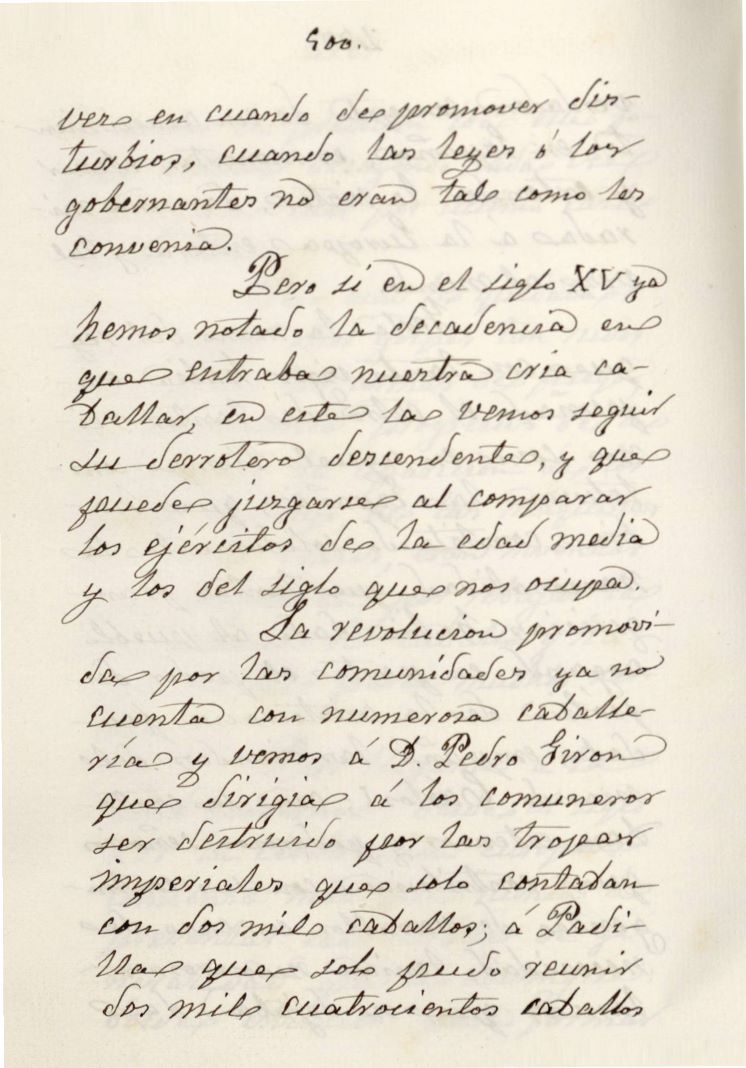 500.
vez en cuando de promover dis-
turbios, cuando las leyes ó los
gobernantes no eran tal como les
convenia.
Pero si en el siglo XV ya
hemos notado la decadencia en
que entraba nuestra cria ca-
ballar, en este la vemos seguir
su derrotero descendente, y que
puede juzgarse al comparar
los ejércitos de la edad media
y los del siglo que nos ocupa.
La revolucion promovi-
da por las comunidades ya no
cuenta con numerosa caballe-
ría y vemos á D. Pedro Giron
que dirigia á los comuneros
ser destruido por las tropas
imperiales que solo contaban
con dos mil caballos; á Padi-
lla que solo pudo reunir
dos mil cuatrocientos caballos